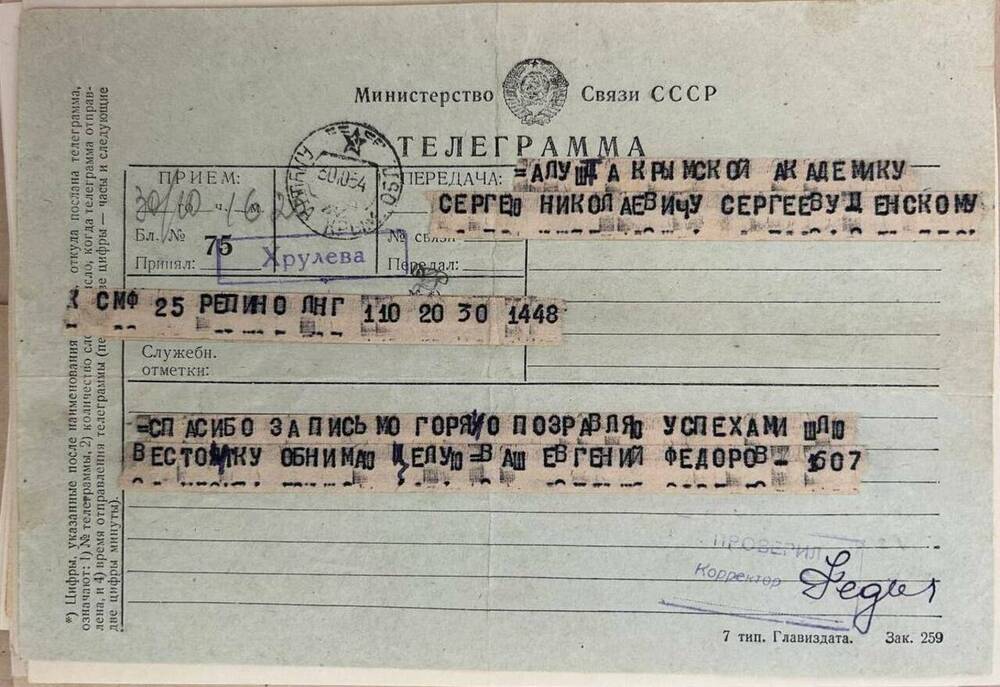 Министерство Связи СССР
ТЕЛЕГРАММА
ПРИЕМ:
30/10 ч. 16
Бл. № 75
Принял:
Хрулева
30 10 54
ПЕРЕДАЧА:
№ связи
Передал:
=АЛУШТА КРЫМСКОЙ АКАДЕМИКУ
СЕРГЕЮ НИКОЛАЕВИЧУ СЕРГЕЕВУ ЦЕНСКОМУ
СМФ 25 РЕПИНО ЛНГ 110 20 30 1448
Служебн.
отметки:
=СПАСИБО ЗА ПИСЬМО ГОРЯЧО ПОЗРАВЛЯЮ УСПЕХАМИ ШЛЮ
ВЕСТОЧКУ ОБНИМАЮ ЦЕЛУЮ=ВАШ ЕВГЕНИЙ ФЕДОРОВ- 1607
*) Цифры, указанные после наименования откуда послана телеграмма,
означают: 1) № телеграммы, 2) количество сло число, когда телеграмма отправ-
лена, и 4) время отправления телеграммы (пе ые цифры — часы и следующие
две цифры минуты).
ПРОВЕРИЛ
Корректор
7 тип. Главиздата. Зак. 259